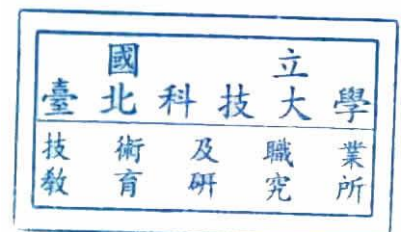 國立
臺北科技大學
技術及職業
教育研究所